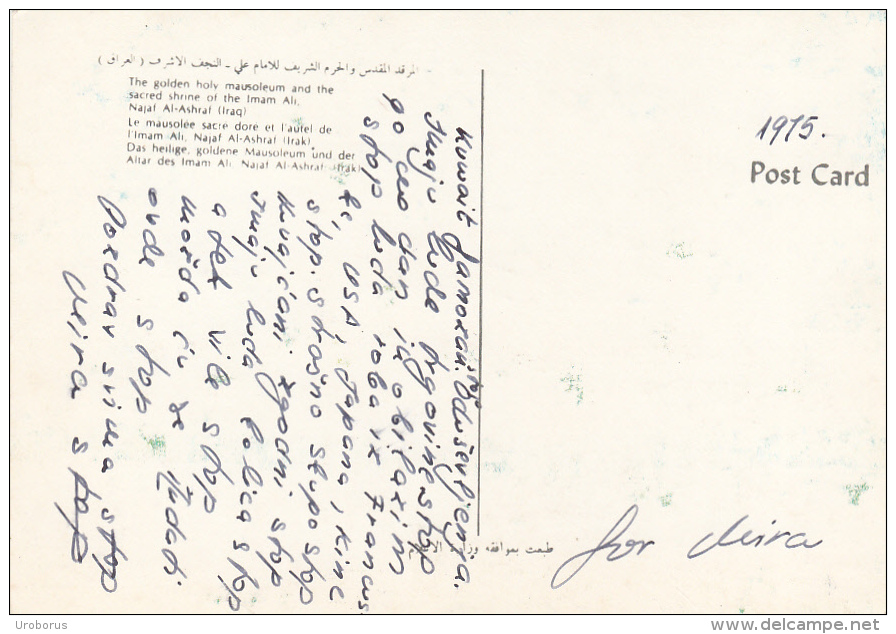 المرقد المقدس والحرم الشريف للامام علي - النجف الاشرف ( العراق )
The golden holy mausoleum and the
sacred shrine of the Imam Ali,
Najaf Al-Ashraf (Iraq)
Le mausolée sacré doré et l'autel de
l'Imam Ali, Najaf Al-Ashraf (Irak)
Das heilige, goldene Mausoleum und der
Altar des Imam Ali, Najaf Al-Ashraf (Irak)
1975.
Post Card
Kuwait
Imaju lude trgovine stop
po ceo dan ih obilazim
stop luda roba iz Francus
ke, USA, Japana, Kine
stop. strašno skupo stop
Kuvajćani zgodni stop
Imaju luda kolica stop
a tek vile stop
možda ću se udati
ovde stop
Pozdrav svima stop
Meira stop
for Meira
طبعت بموافقة وزارة الاعلام
Uroborus
delcampe.net